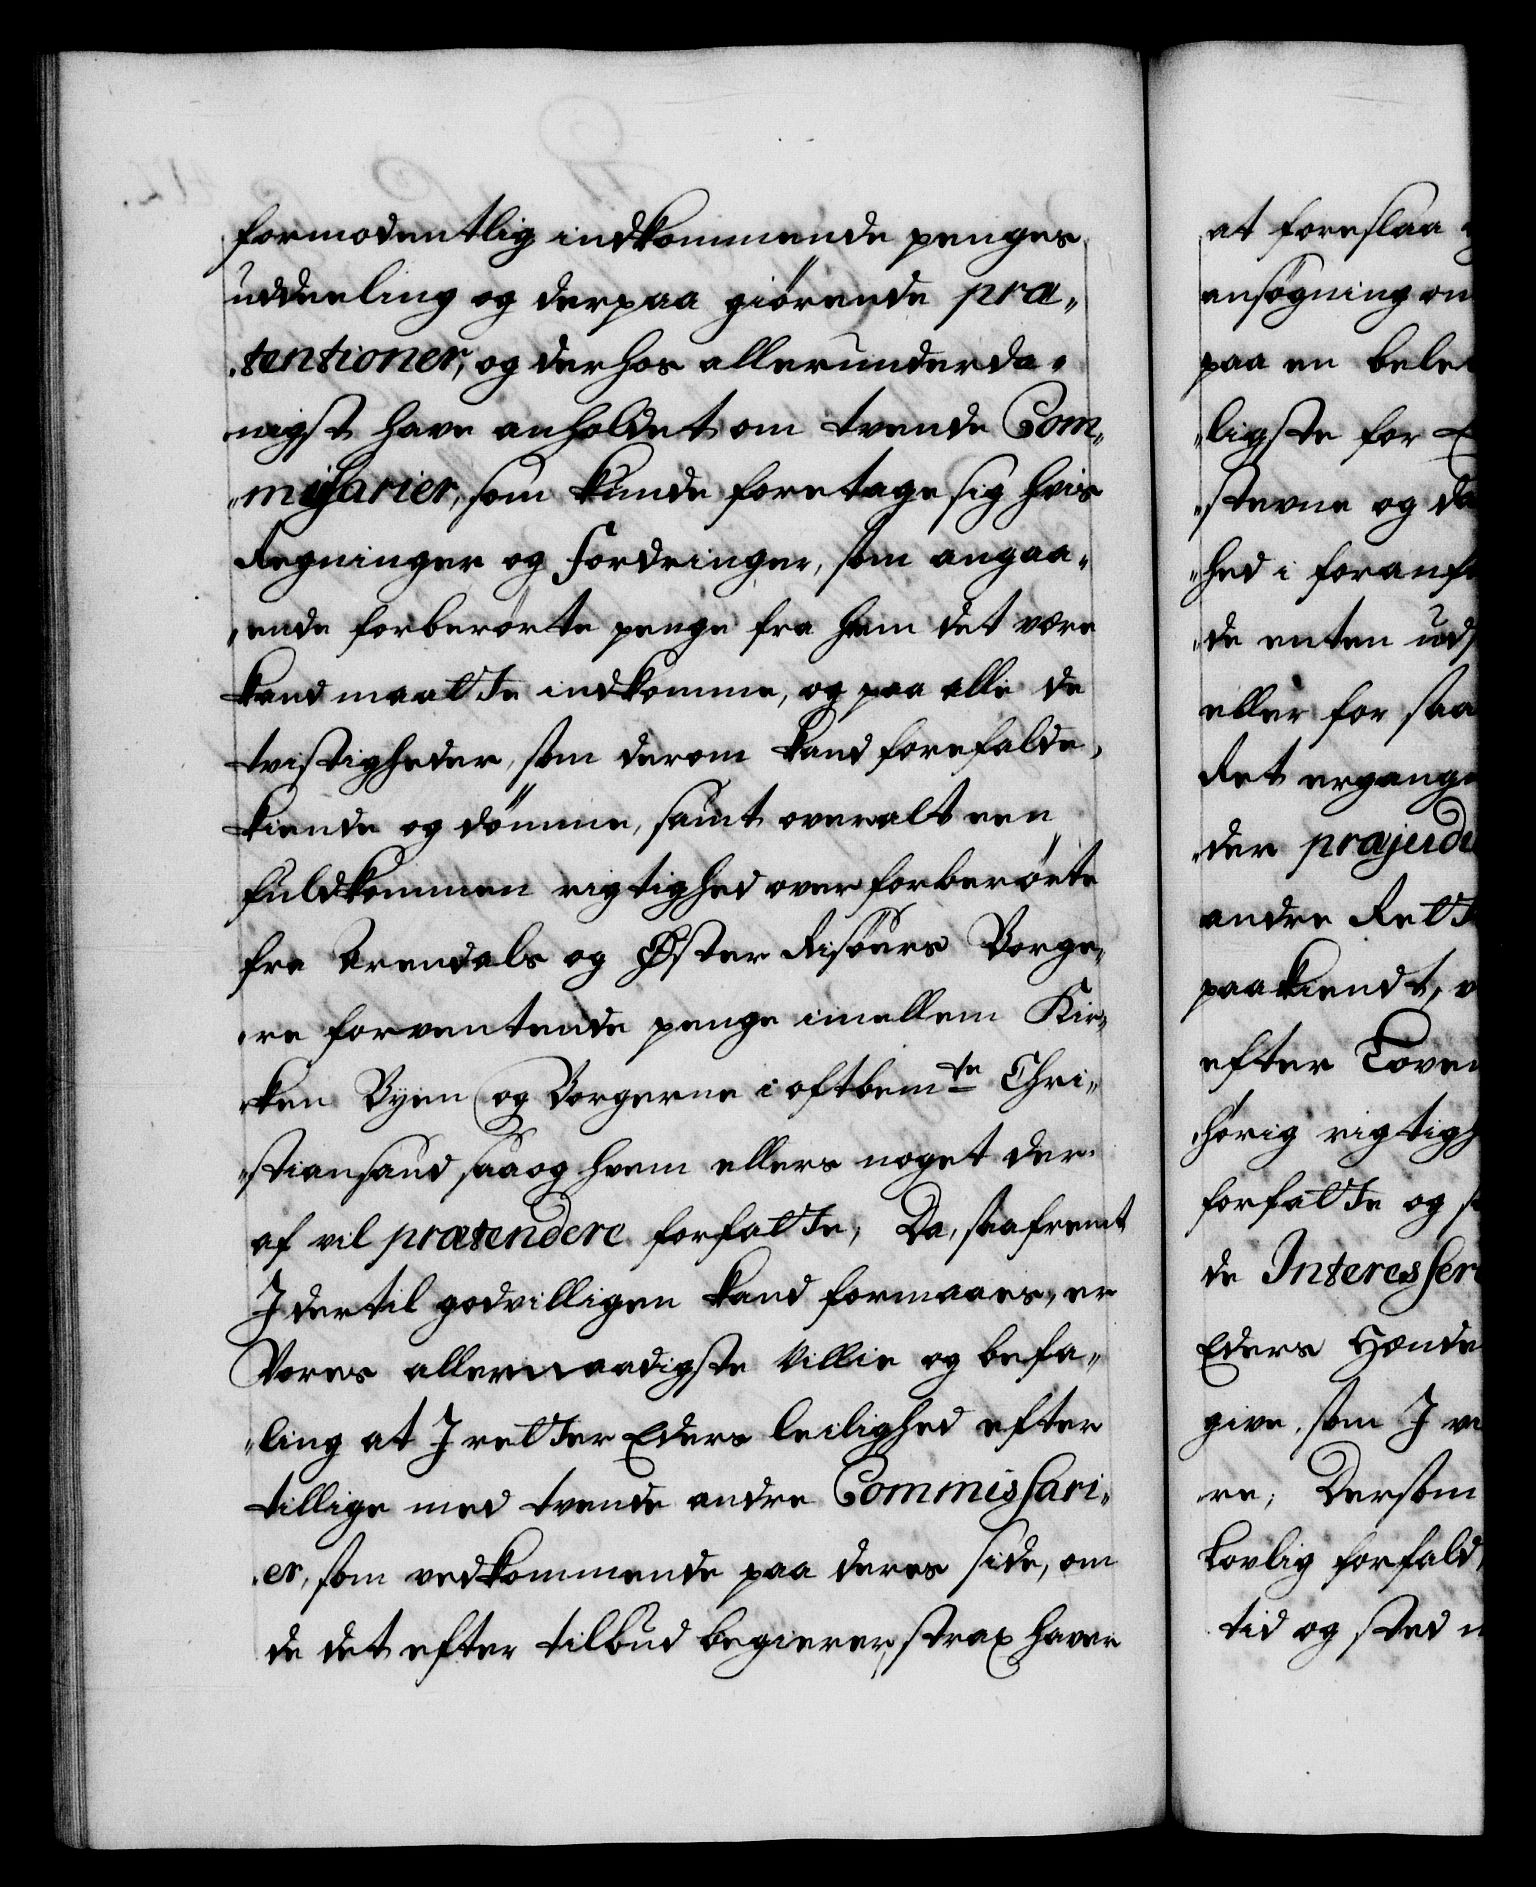 formodentlig indkommende penges
uddeeling og derpaa giörende præ„
„tentioner, og derhos allerunderda„
nigst have anholdet om tvende Com„
„missarier, som kunde foretage sig hvis
Regninger og Fordringer, som angaa„
„ende forberørte penge fra hvem det være
kand maatte indkomme, og paa alle de
tvistigheder, som derom kand forefalde,
kiende og dömme, samt overalt een
fuldkommen rigtighed over forberörte
fra Arendals og Øster Risöers Borge„
„re forventende penge imellem Kir„
„ken Byen og Borgerne i oftbemte Chri„
„stiansand saaog hvem ellers noget der„
af vil prætendere forfatte, Da, saafremt
I dertil godvilligen kand formaaes, er
Vores allernaadigste Villie og befa„
„ling at I retter Eders leilighed efter
tillige med tvende andre Commissari„
„er, som vedkommende paa deres side, om
de det efter tilbud begierer, strax haver
at foreslaa
ansøgning om
paa en bele
„ligste for
„stevne og
„hed i foranf
„de enten uds
eller for staa
Ret ergange
„der præjudi
andre Rett
paakiendt,
efter Loven
„hörig rigtigh
forfatte og
de Interesser
Eders Hænde
give, som I
re, Dersom
Lovlig forfald
tid og sted